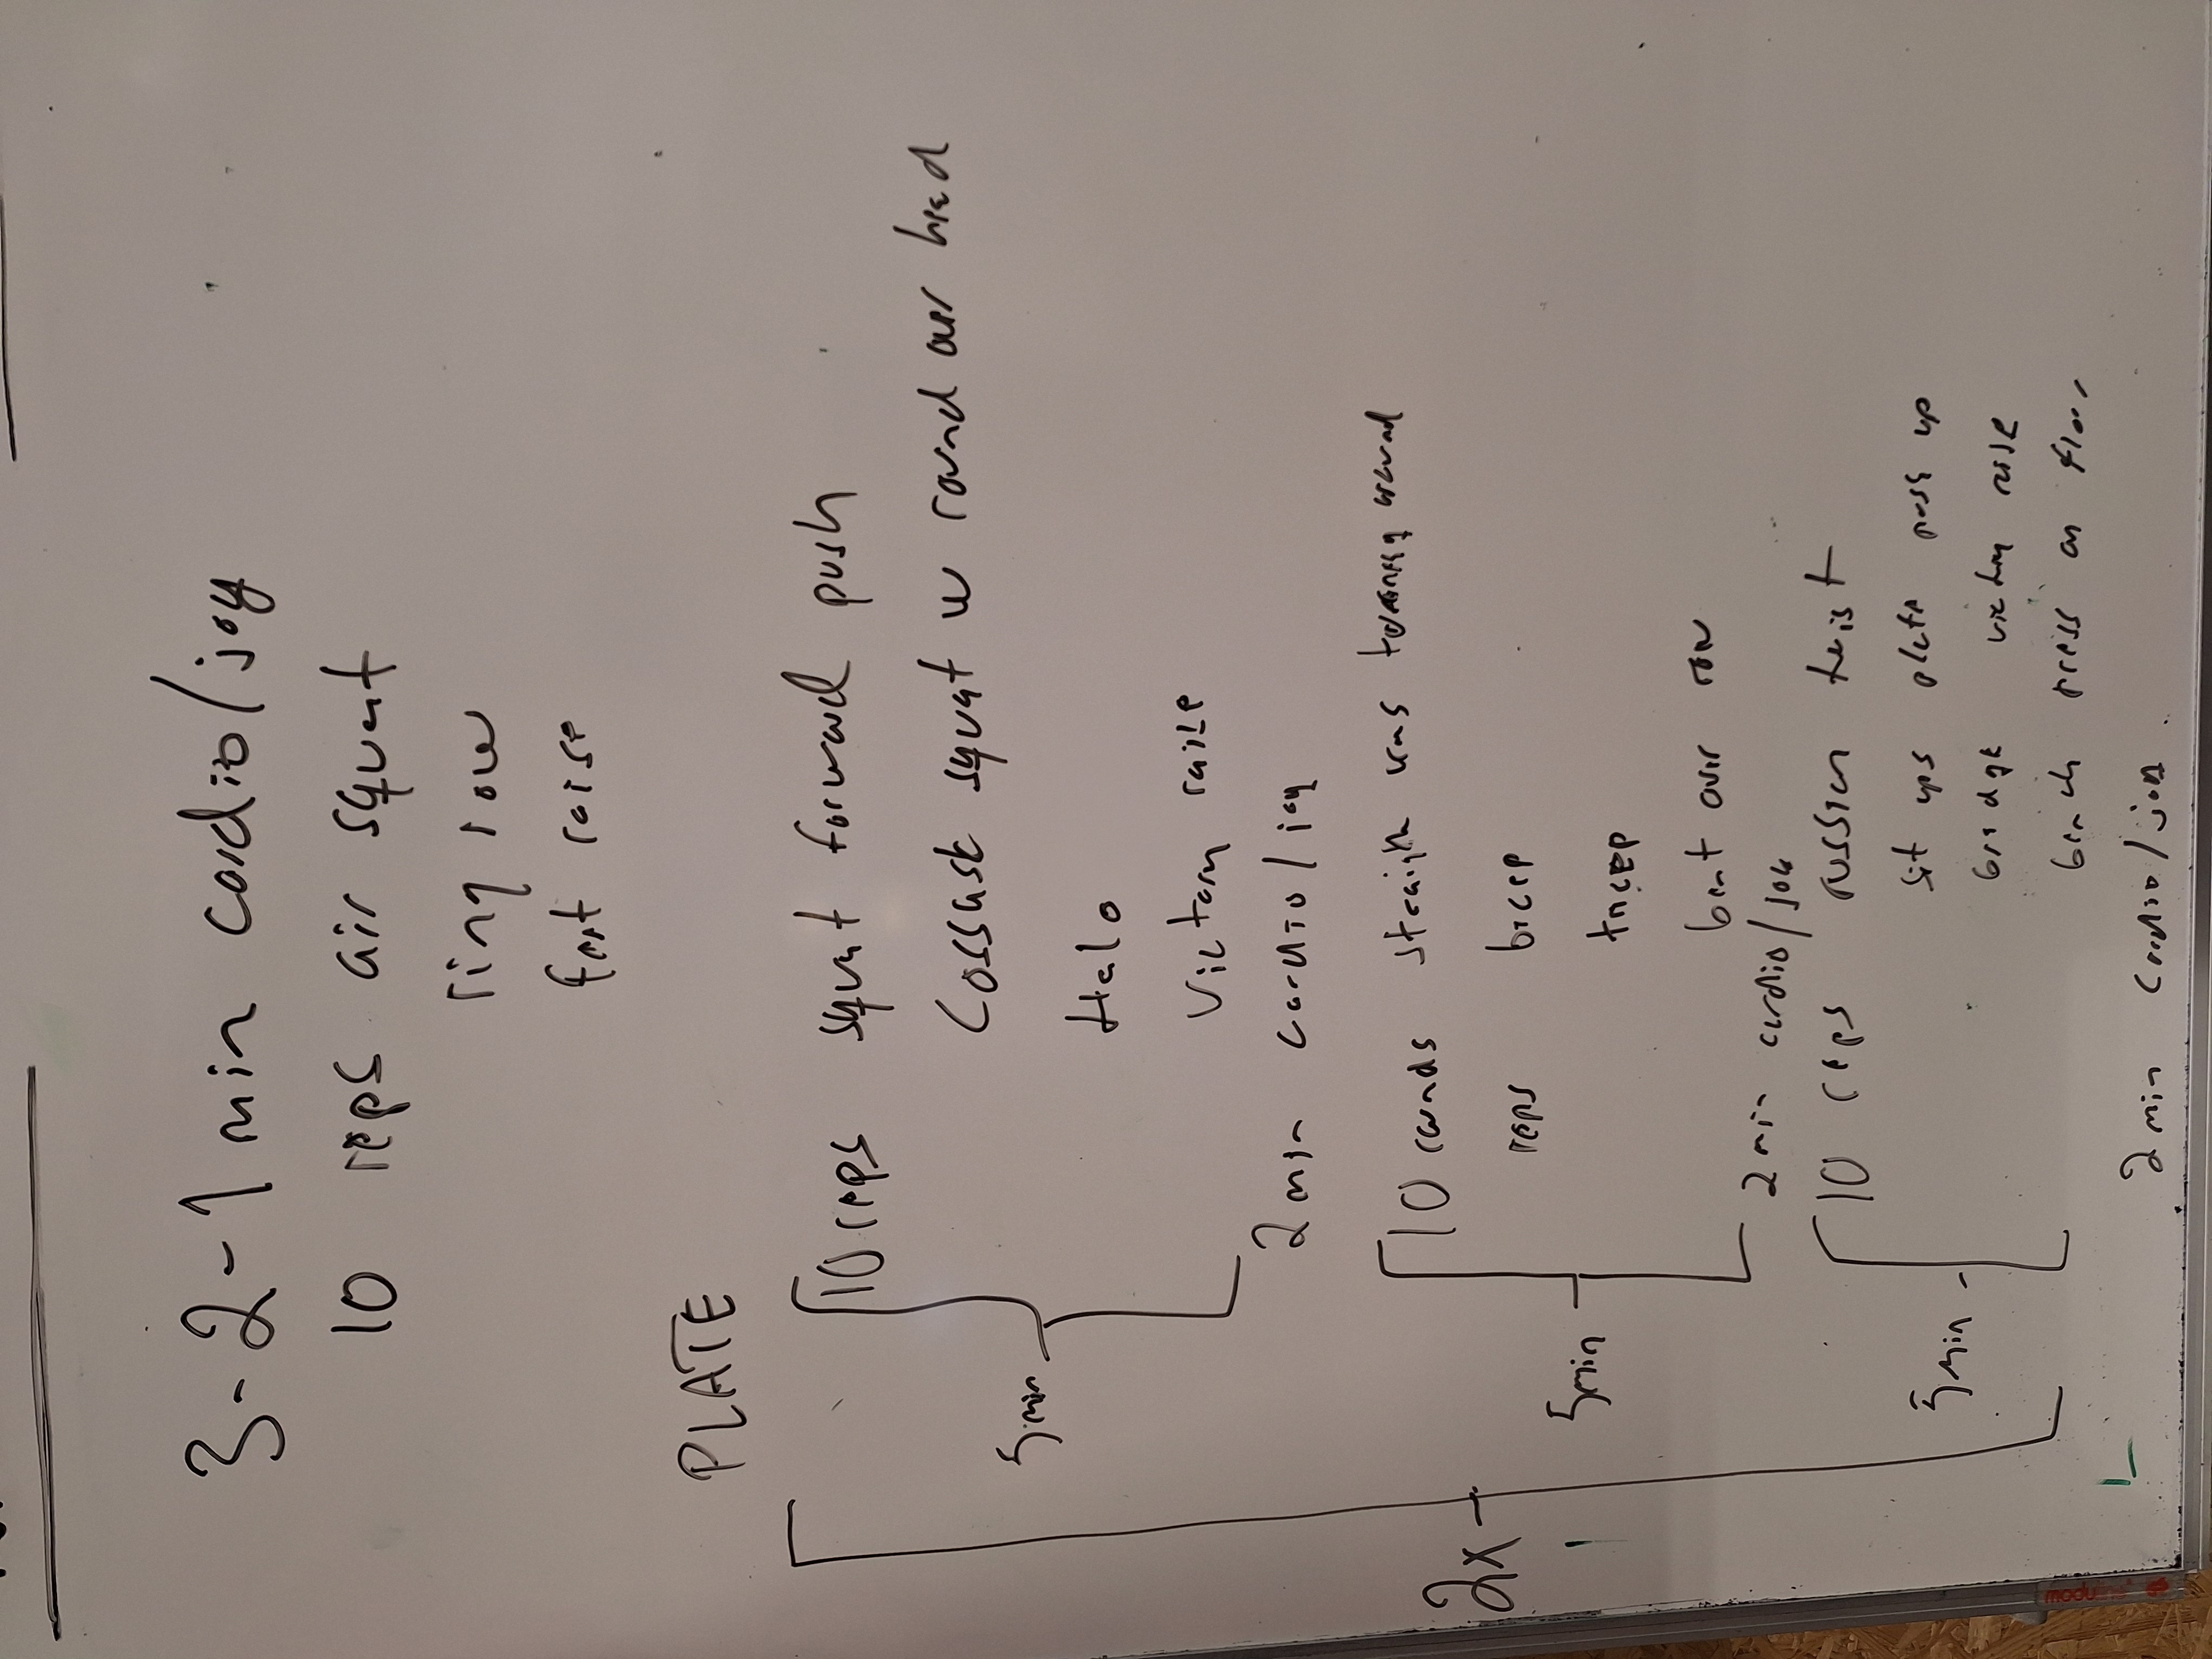 3-2-1 min cardio/jog
10 reps air squat
ring row
front raise
PLATE
10 reps squat forward push
Cossack squat w round over head
Halo
Victory raise
5min
2 min cardio/jog
10 rounds straight arms
reps bicep
tricep
bent over row
5min
2 min cardio/jog
10 reps russian twist
sit ups plate push up
bridge victory raise
bench press on floor
5min
2x
2 min cardio/jog
moduline